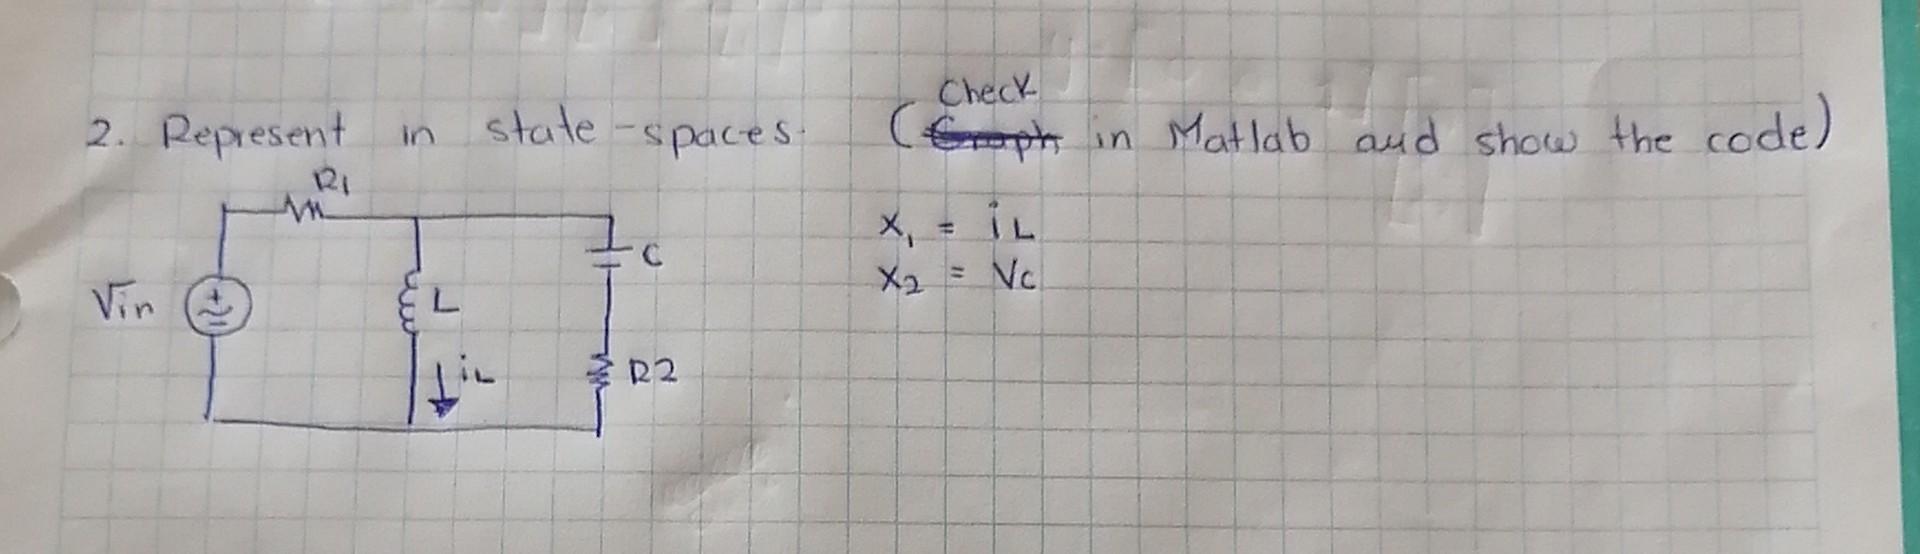 Check
2. Represent in state-spaces. (Graph in Matlab and show the code)
R1
x₁ = iL
C
x2 = Vc
Vin
L
iL
R2